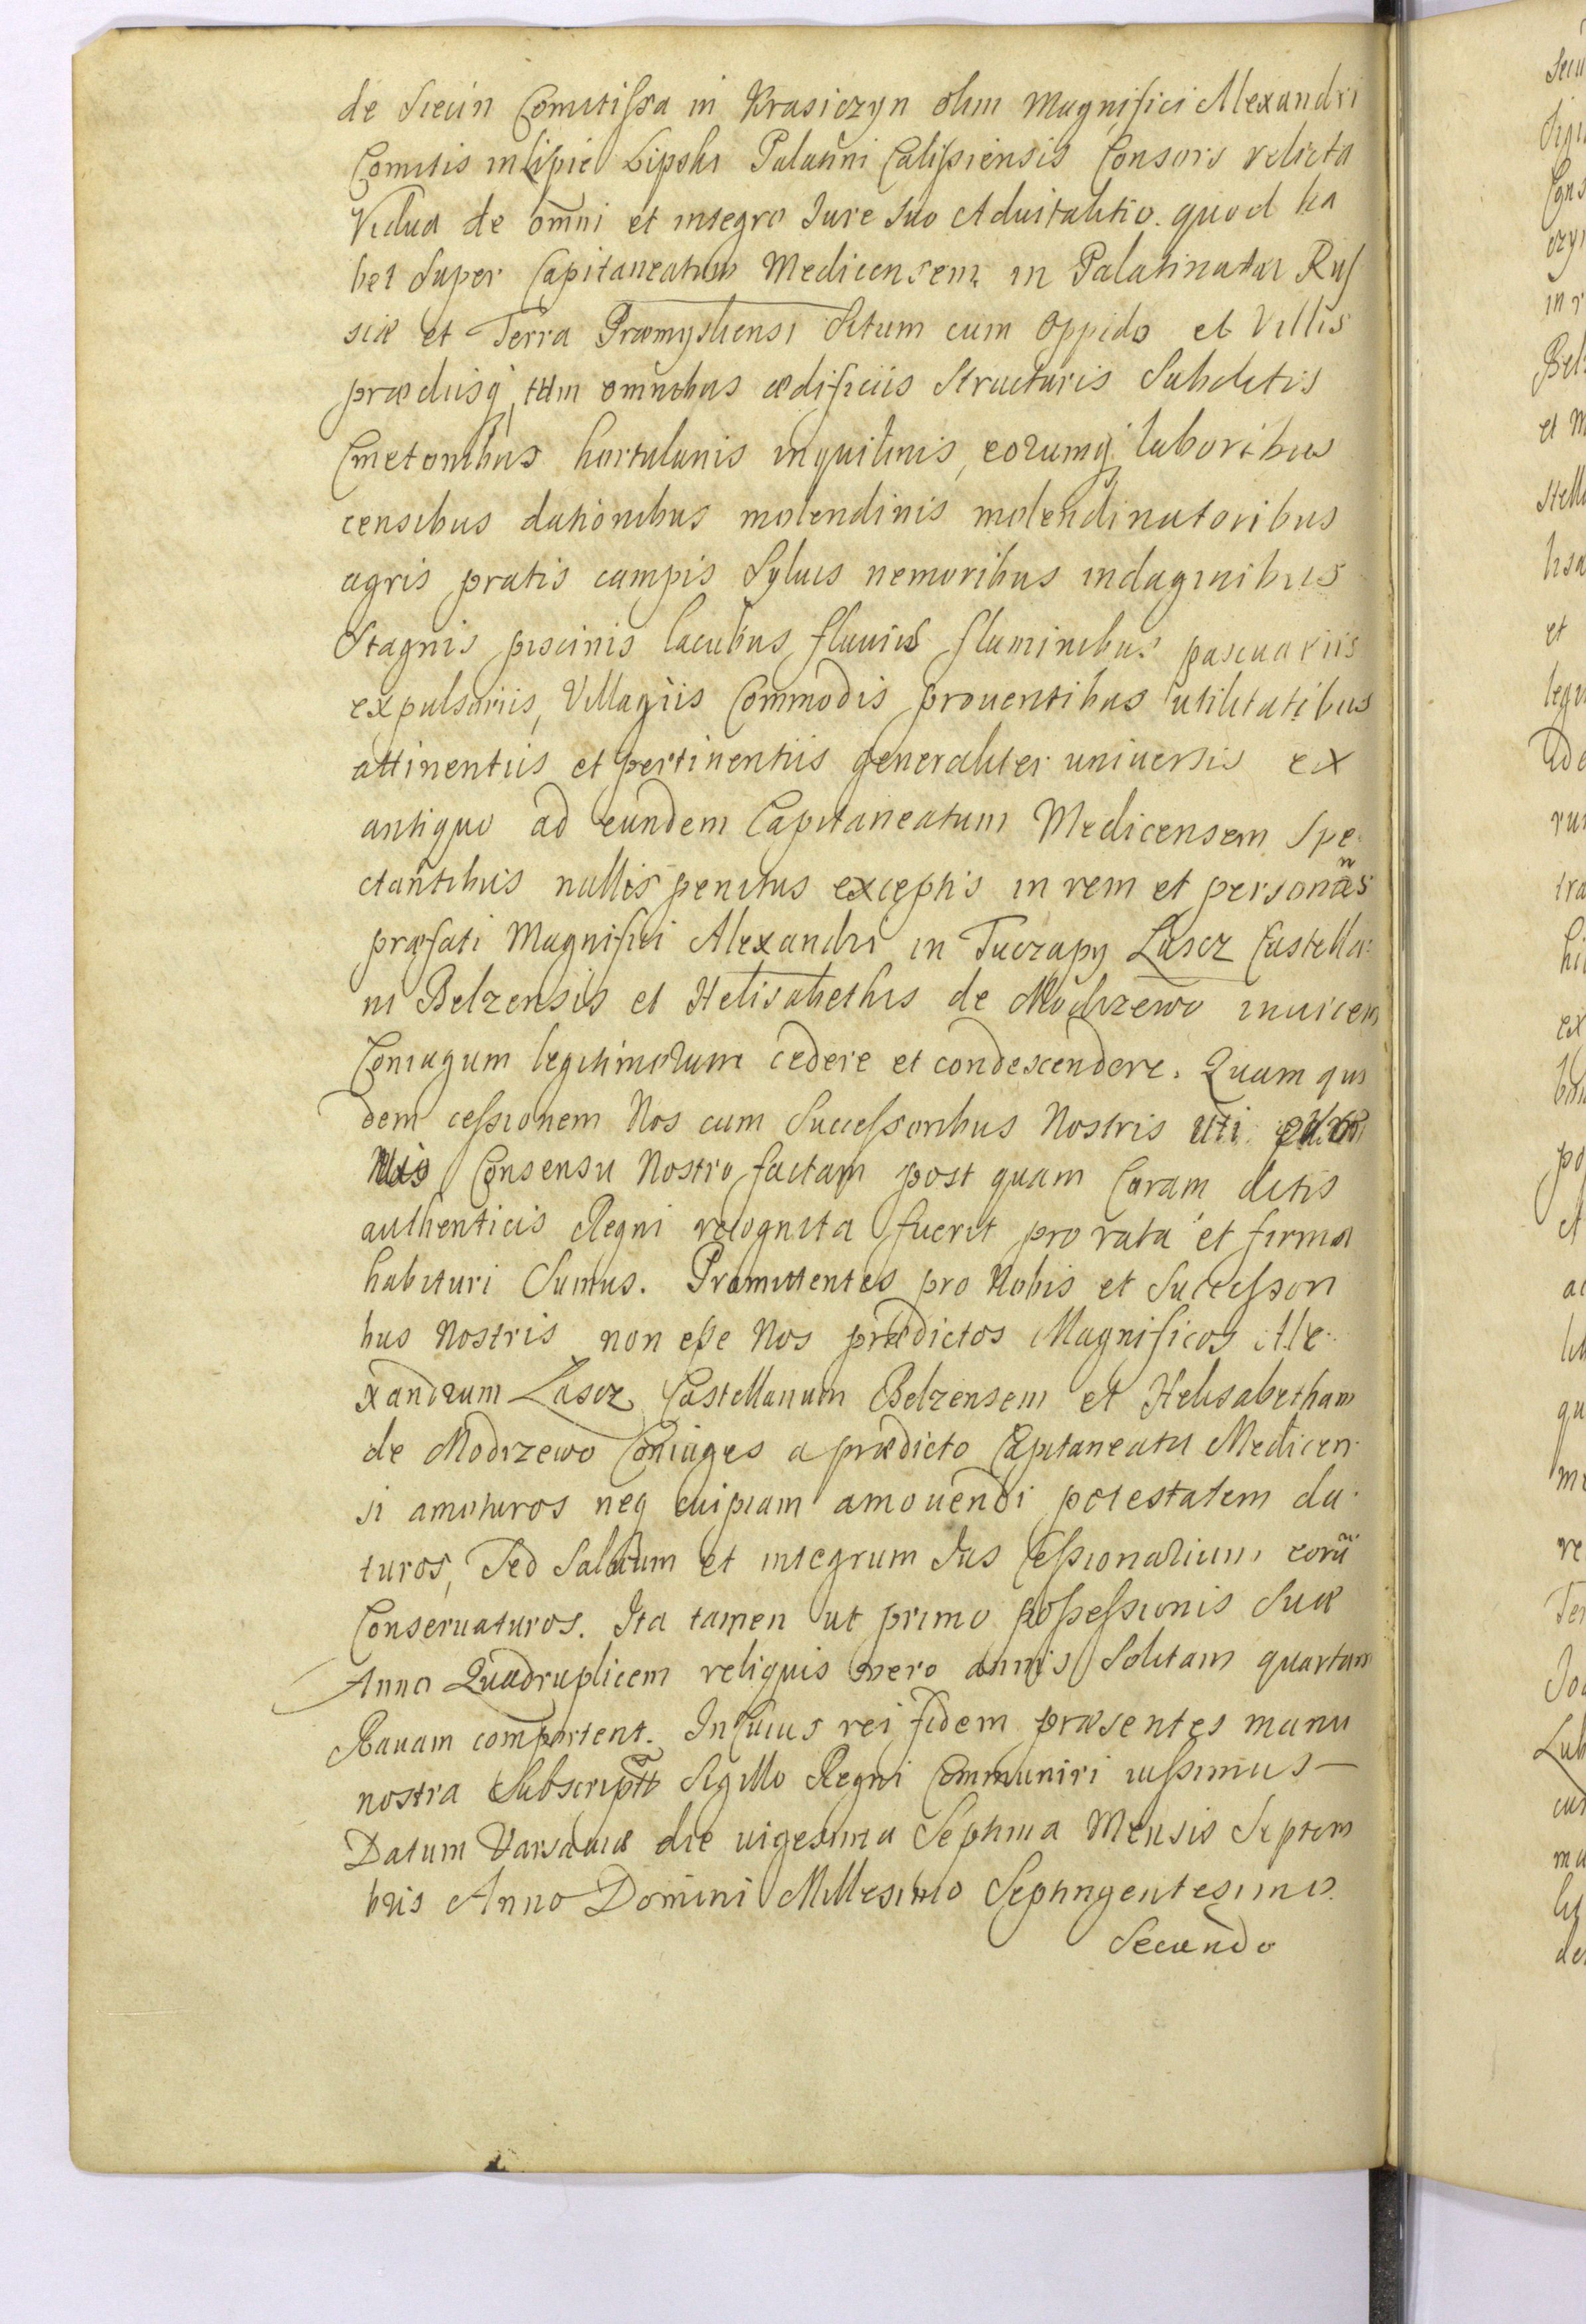 de Siecin Comitissa in Krasiczyn olim Magnifici Alexandri
Comitis in Lipie Lipski Palatini Calissiensis Consors relicta
Vidua de omni et integro Jure suo Aduitalitio. quod ha
bet Super Capitaneatum Medicensem in Palatinatu Rus
siæ et Terra Præmysliensi Situm cum Oppido et Villis
prædiisq tum omnibus ædificiis Structuris Subditis
Cmetonibus hortulanis inquilinis, eorumq laboribus
censibus dationibus molendinis molendinatoribus
agris pratis campis Syluis nemoribus indaginibus
Stagnis piscinis lacubus fluuiis fluminibus pascuariis
expulsoriis, Villagiis Commodis prouentibus utilitatibus
attinentiis et pertinentiis generaliter uniuersis ex
antiquo ad eundem Capitaneatum Medicensem Spe
ctantibus nullis penitus exceptis in rem et personas
præfati Magnifici Alexandri in Tuczapy Łascz Castella:
ni Belzensis et Helisabethis de Modrzewo inuicem
Coniugum legitimorum cedere et condescendere. Quam qui
dem cessionem Nos cum Successoribus Nostris uti
Consensu Nostro factam post quam Coram Actis
authenticis Regni recognita fuerit pro rata et firma
habituri Sumus. Promittentes pro Nobis et Successori
bus Nostris non esse Nos prædictos Magnificos Ale
xandrum Łascz Castellanum Belzensem et Helisabetham
de Modrzewo Coniuges a prædicto Capitaneatu Medicen
si amoturos neq cuipiam amouendi potestatem da
turos, Sed Saluum et integrum Jus Cessionarium eorū
Conseruaturos. Ita tamen ut primo possessionis Suæ
Anno Quadruplicem reliquis vero annis Solitam quartam
Rauam comportent. In Cuius rei fidem præsentes manu
nostra Subscriptt Sigillo Regni Communiri iussimus —
Datum Varsauiæ die uigesima Septima Mensis Septem
bris Anno Domini Millesimo Septingentesimo
Secundo